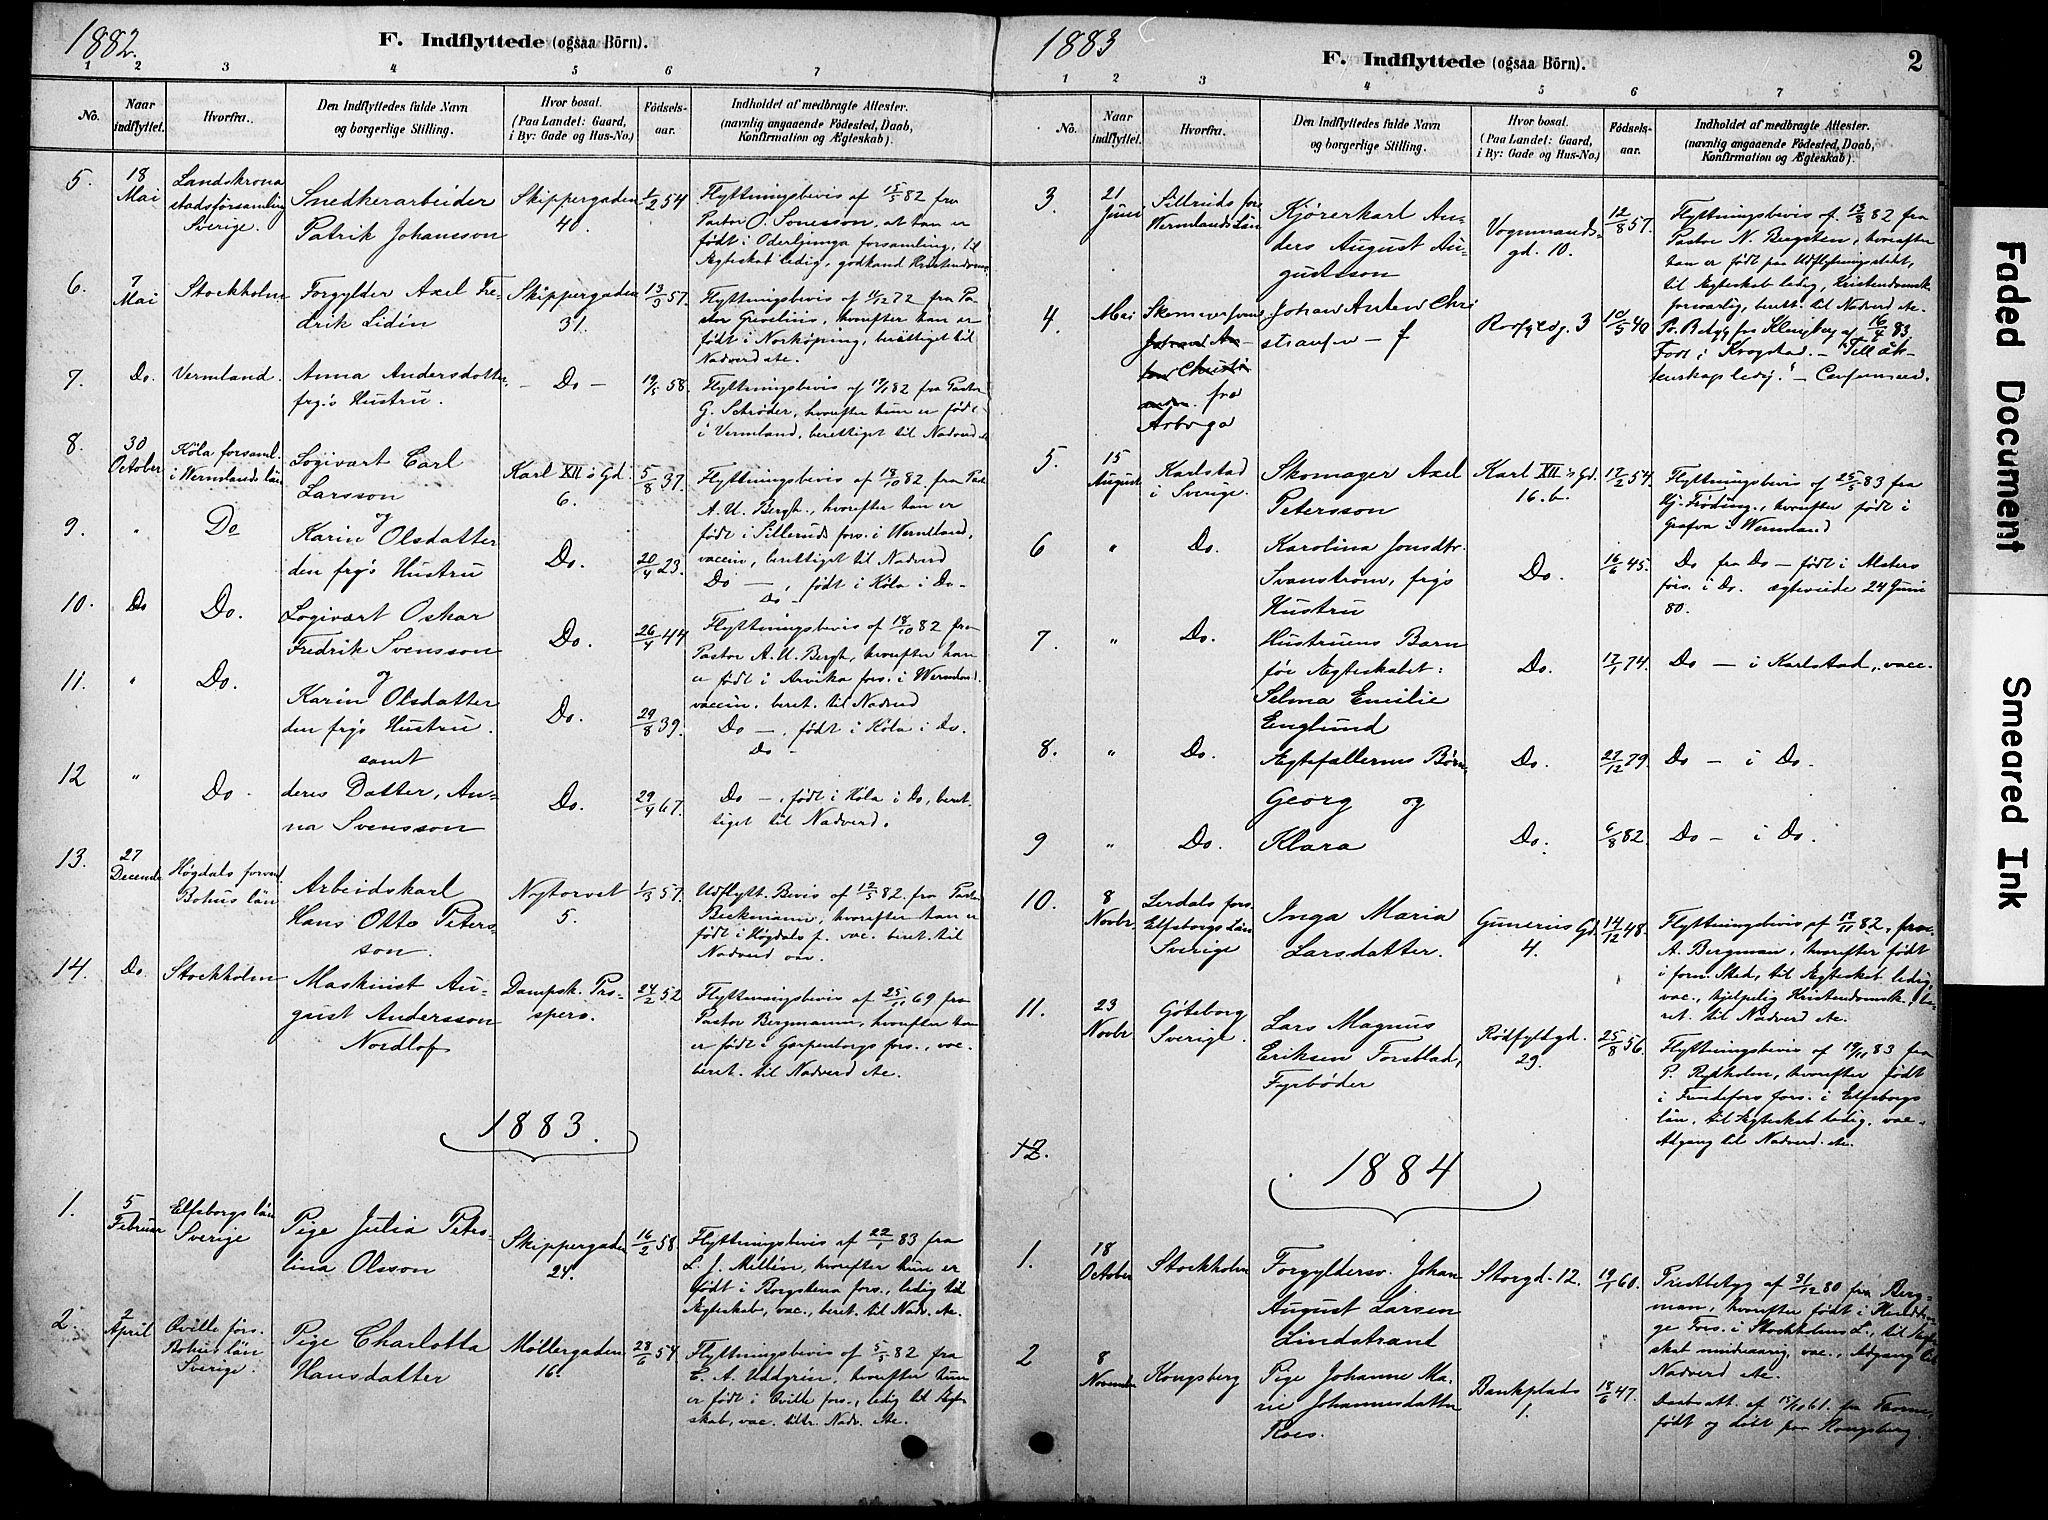 1882.
F. Indflyttede (ogsaa Börn).
1 2 3 4 5 6 7
No.
Naar indflyttet.
Hvorfra.
Den Indflyttedes fulde Navn
og borgerlige Stilling.
Hvor bosat.
(Paa Landet: Gaard,
i By: Gade og Hus-No.)
Fødsels-
aar.
Indholdet af medbragte Attester.
(navnlig angaaende Fødested, Daab,
Konfirmation og Ægteskab).
5. 18 Mai
Landskrona
stadsförsamling
Sverige.
Snedkerarbeider
Patrik Johansson
Skippergaden
40.
1/2 54
Flyttningsbevis af 15/5 82 fra
Pastor O. Sonesson, at han er
født i Oderljunga forsamling, til
Ægteskab ledig, godkand Kristendoms
6. 7 Mai
Stockholm
Forgylder Axel Fre-
drik Lidén
Skippergaden
31.
13/9 57
Flyttningsbevis af 11/12 72 fra Pa-
stor Grevelius, hvorefter han er
født i Norköping, berättiget til
Nadverd etc.
7. Do. Vermland.
Anna Andersdotter
frg's Hustru.
- Do -
19/5 58.
Flyttningsbevis af 19/1 82 fra Pastor
G. Schrøder, hvorefter hun er født
i Vermland, berettiget til Nadverd
8. 30 October
Köla forsaml.
i Wermlands län
Logivært Carl
Larsson
og
Karl XII's Gd.
6.
5/8 37.
Flyttningsbevis af 18/10 82 fra Past
A. U. Bergh, hvorefter han er
født i Silleruds fors. i Wermland,
vaccin, berettiget til Nadverd
9. " Do
Karin Olsdatter
den frg's Hustru
Do.
20/4 23.
Do —, født i Köla i Do-
Do -
10. Do Do.
Logivært Oskar
Fredrik Svensson
og
Do.
26/4 44
Flyttningsbevis af 18/10 82 fra
Pastor A. U. Bergh, hvorefter han
er født i Arvika fors. i Wermland.
vaccin, beret. til Nadverd
11. " Do.
Karin Olsdatter
den frg's Hustru.
samt
Do.
29/8 39.
Do —, født i Köla i Do.
Do -
12 " Do.
deres Datter, An-
na Svensson
Do.
29/4 67.
Do —, født i Köla i Do, beret-
tiget til Nadverd.
13. 27 Decembr
Högdals forsaml.
Bohus län
Arbeidskarl
Hans Otto Peters-
son.
Nytorvet
5.
1/3 57.
Udflytt. Bevis af 12/5 82. fra Pastor
Beckmann, hvorefter han er
født i Högdals f. vac. beret. til
Nadverd osv.
14. Do. Stockholm
Maskinist Au-
gust Andersson
Nordlöf
Dampsk. Pro-
spero.
24/2 52
Flyttningsbevis af 25/11 69 fra
Pastor Bergmann, hvorefter han
er født i Garpenborgs fors., vac.
beret. til Nadverd etc.
1883.
1. 5 Februar
Elfsborgs län
Sverige
Pige Julia Peters-
lina Olsson
Skippergaden
24.
16/2 58.
Flyttningsbevis af 22/1 83 fra
L. J. Millén, hvorefter hun er
født i Borgstena fors., ledig til
Ægteskab, vac., beret. til Nadv. etc.
2. 2 April
Qville förs.
Bohus län
Sverige.
Pige Charlotta
Hansdatter
Møllergaden
16.
28/6 54
Flyttningsbevis af 5/5 82 fra
E. A. Uddgrén, hvorefter hun
er født i Qville fors., ledig til Ægte-
skab, vac. tiltr. Nadv. etc.
1883
F. Indflyttede (ogsaa Börn).
2
1 2 3 4 5 6 7
No.
Naar indflyttet.
Hvorfra.
Den Indflyttedes fulde Navn
og borgerlige Stilling.
Hvor bosat.
(Paa Landet: Gaard,
i By: Gade og Hus-No.)
Fødsels-
aar.
Indholdet af medbragte Attester.
(navnlig angaaende Fødested, Daab,
Konfirmation og Ægteskab).
3. 21 Juni
Silleruds fors
Wermlands Län
Kjørerkarl An-
ders August Au-
gustsson
Vognmands-
gd. 10.
12/8 57.
Flyttningsbevis af 13/8 82 fra
Pastor N. Bergsten, hvorefter
han er født paa Udflytningsstedet,
til Ægteskab ledig, Kristendomsk.
forsvarlig, beret. til Nadverd etc.
4. Mai
fra
Arboga
Johan Anton Chri
10/5 40
16/4 83
Født i Krogstad. - Till äk-
tenskap ledig. -
5. 15 August
Karlstad
i Sverige.
Skomager Axel
Petersson
Karl XII's Gd.
16. b.
17/2 54.
Flyttningsbevis af 25/5 83 fra
Hj. Fröding, hvorefter født i
Grafva i Wermland
6 " Do.
Karolina Jonsdtr.
Svanstrom, frg's
Hustru
Do.
16/6 45.
Do fra Do - født i Alsters
förs. i Do. ægteviede 24 Juni
80.
7. " Do.
Hustruens Barn
før Ægteskabet:
Selma Emilie
Englund
Do.
17/1 74.
Do — i Karlstad, vacc.
8. " Do.
Ægtefællernes Børn
Georg og
Do.
27/12 79.
Do — i Do.
9 " Do.
Klara
Do.
6/8 82.
Do - i Do.
10. 8 Novbr
Lerdals fors.
Elfsborgs Län
Sverige
Inga Maria
Larsdatter.
Gunerius Gd.
4.
14/12 48.
Flyttningsbevis af 18/11 82, fra
A. Bergman, hvorefter født
i forn. Sted, til Ægteskab ledig,
vac., hjelpelig Kristendomsk., be-
ret. til Nadverd etc.
11. 23 Novbr
Göteborg
Sverige.
Lars Magnus
Eriksen Forsblad,
Fyrbøder
Rødfyldgd.
29.
25/8 56.
Flyttningsbevis af 19/11 83 fra
P. Rydholm, hvorefter født
i Fors. i Elfsborgs
län, til Ægteskab ledig, vac.
Adgang til Nadverd etc.
12.
1884
1. 18 October
Stockholm
Forgyldersv. Johan
August Larsen
Lindstrand
Storgd. 12.
19/1 60.
Prestbetyg af 31/12 80 fra Berg-
man, hvorefter født i
ge Fors. i Stockholms L., til Ægte-
skab mindreaarig, vac., Adgang til
Nadverd etc.
2 8 Novembr
Kongsberg
Pige Johanne Ma-
rie Johannesdatter
Roes.
Bankplads
1.
18/6 47.
Daabsatt. af 15/10 61. fra
født og døbt paa Kongsberg.
Faded Document
Smeared Ink